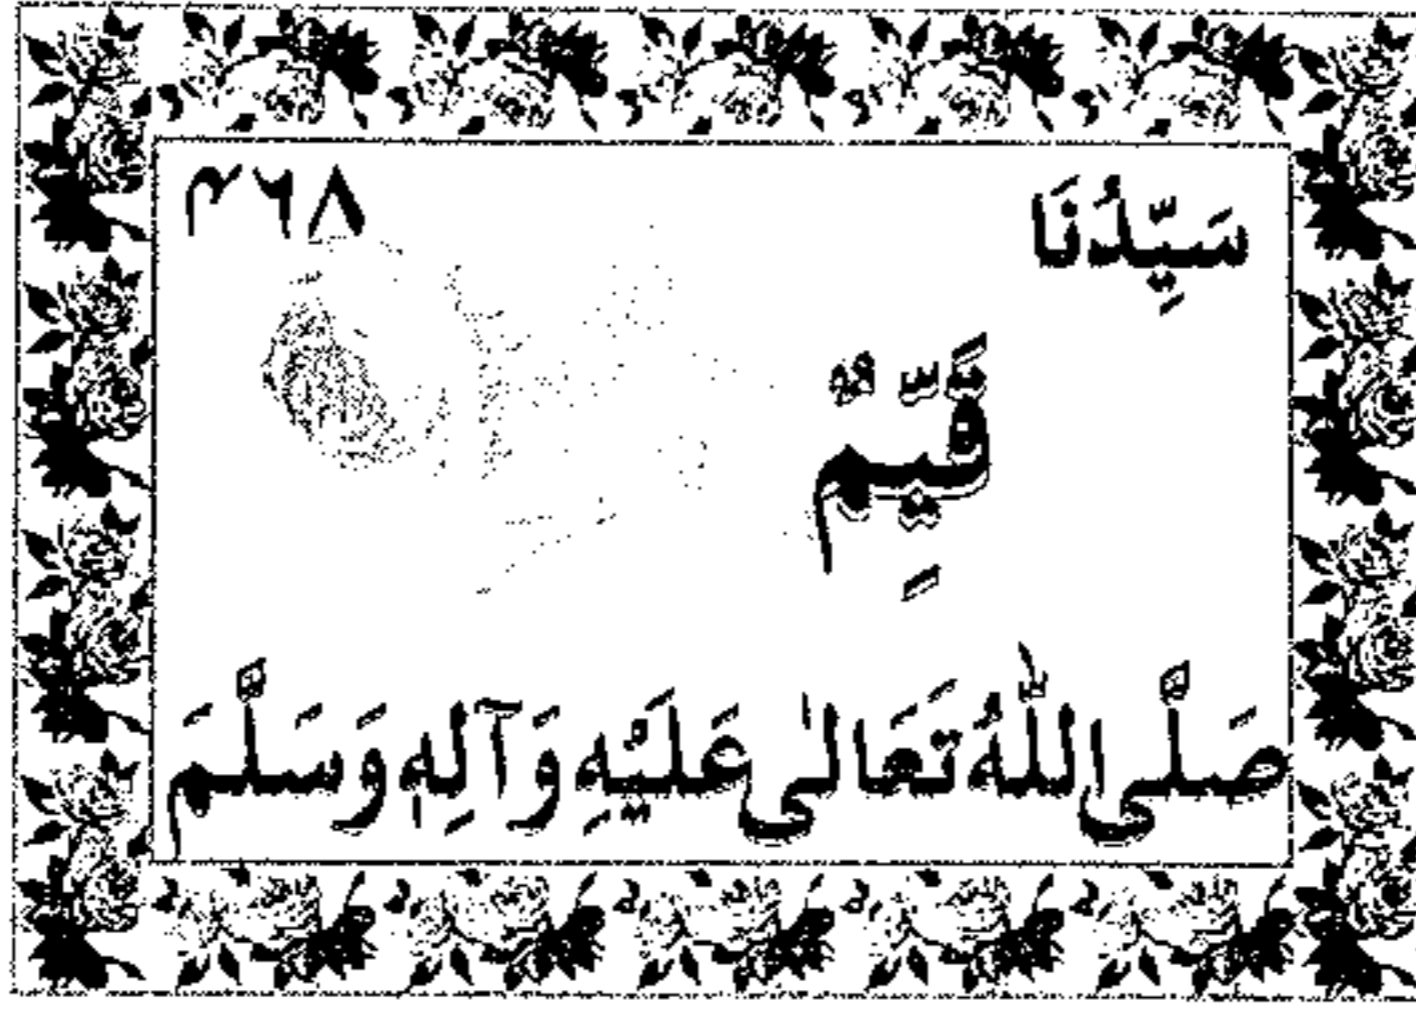 سَيِّدُنَا ۳۶۸
قَيِّمٌ
صَلَّى اللّٰهُ تَعَالٰى عَلَيْهِ وَآلِهٖ وَسَلَّمَ